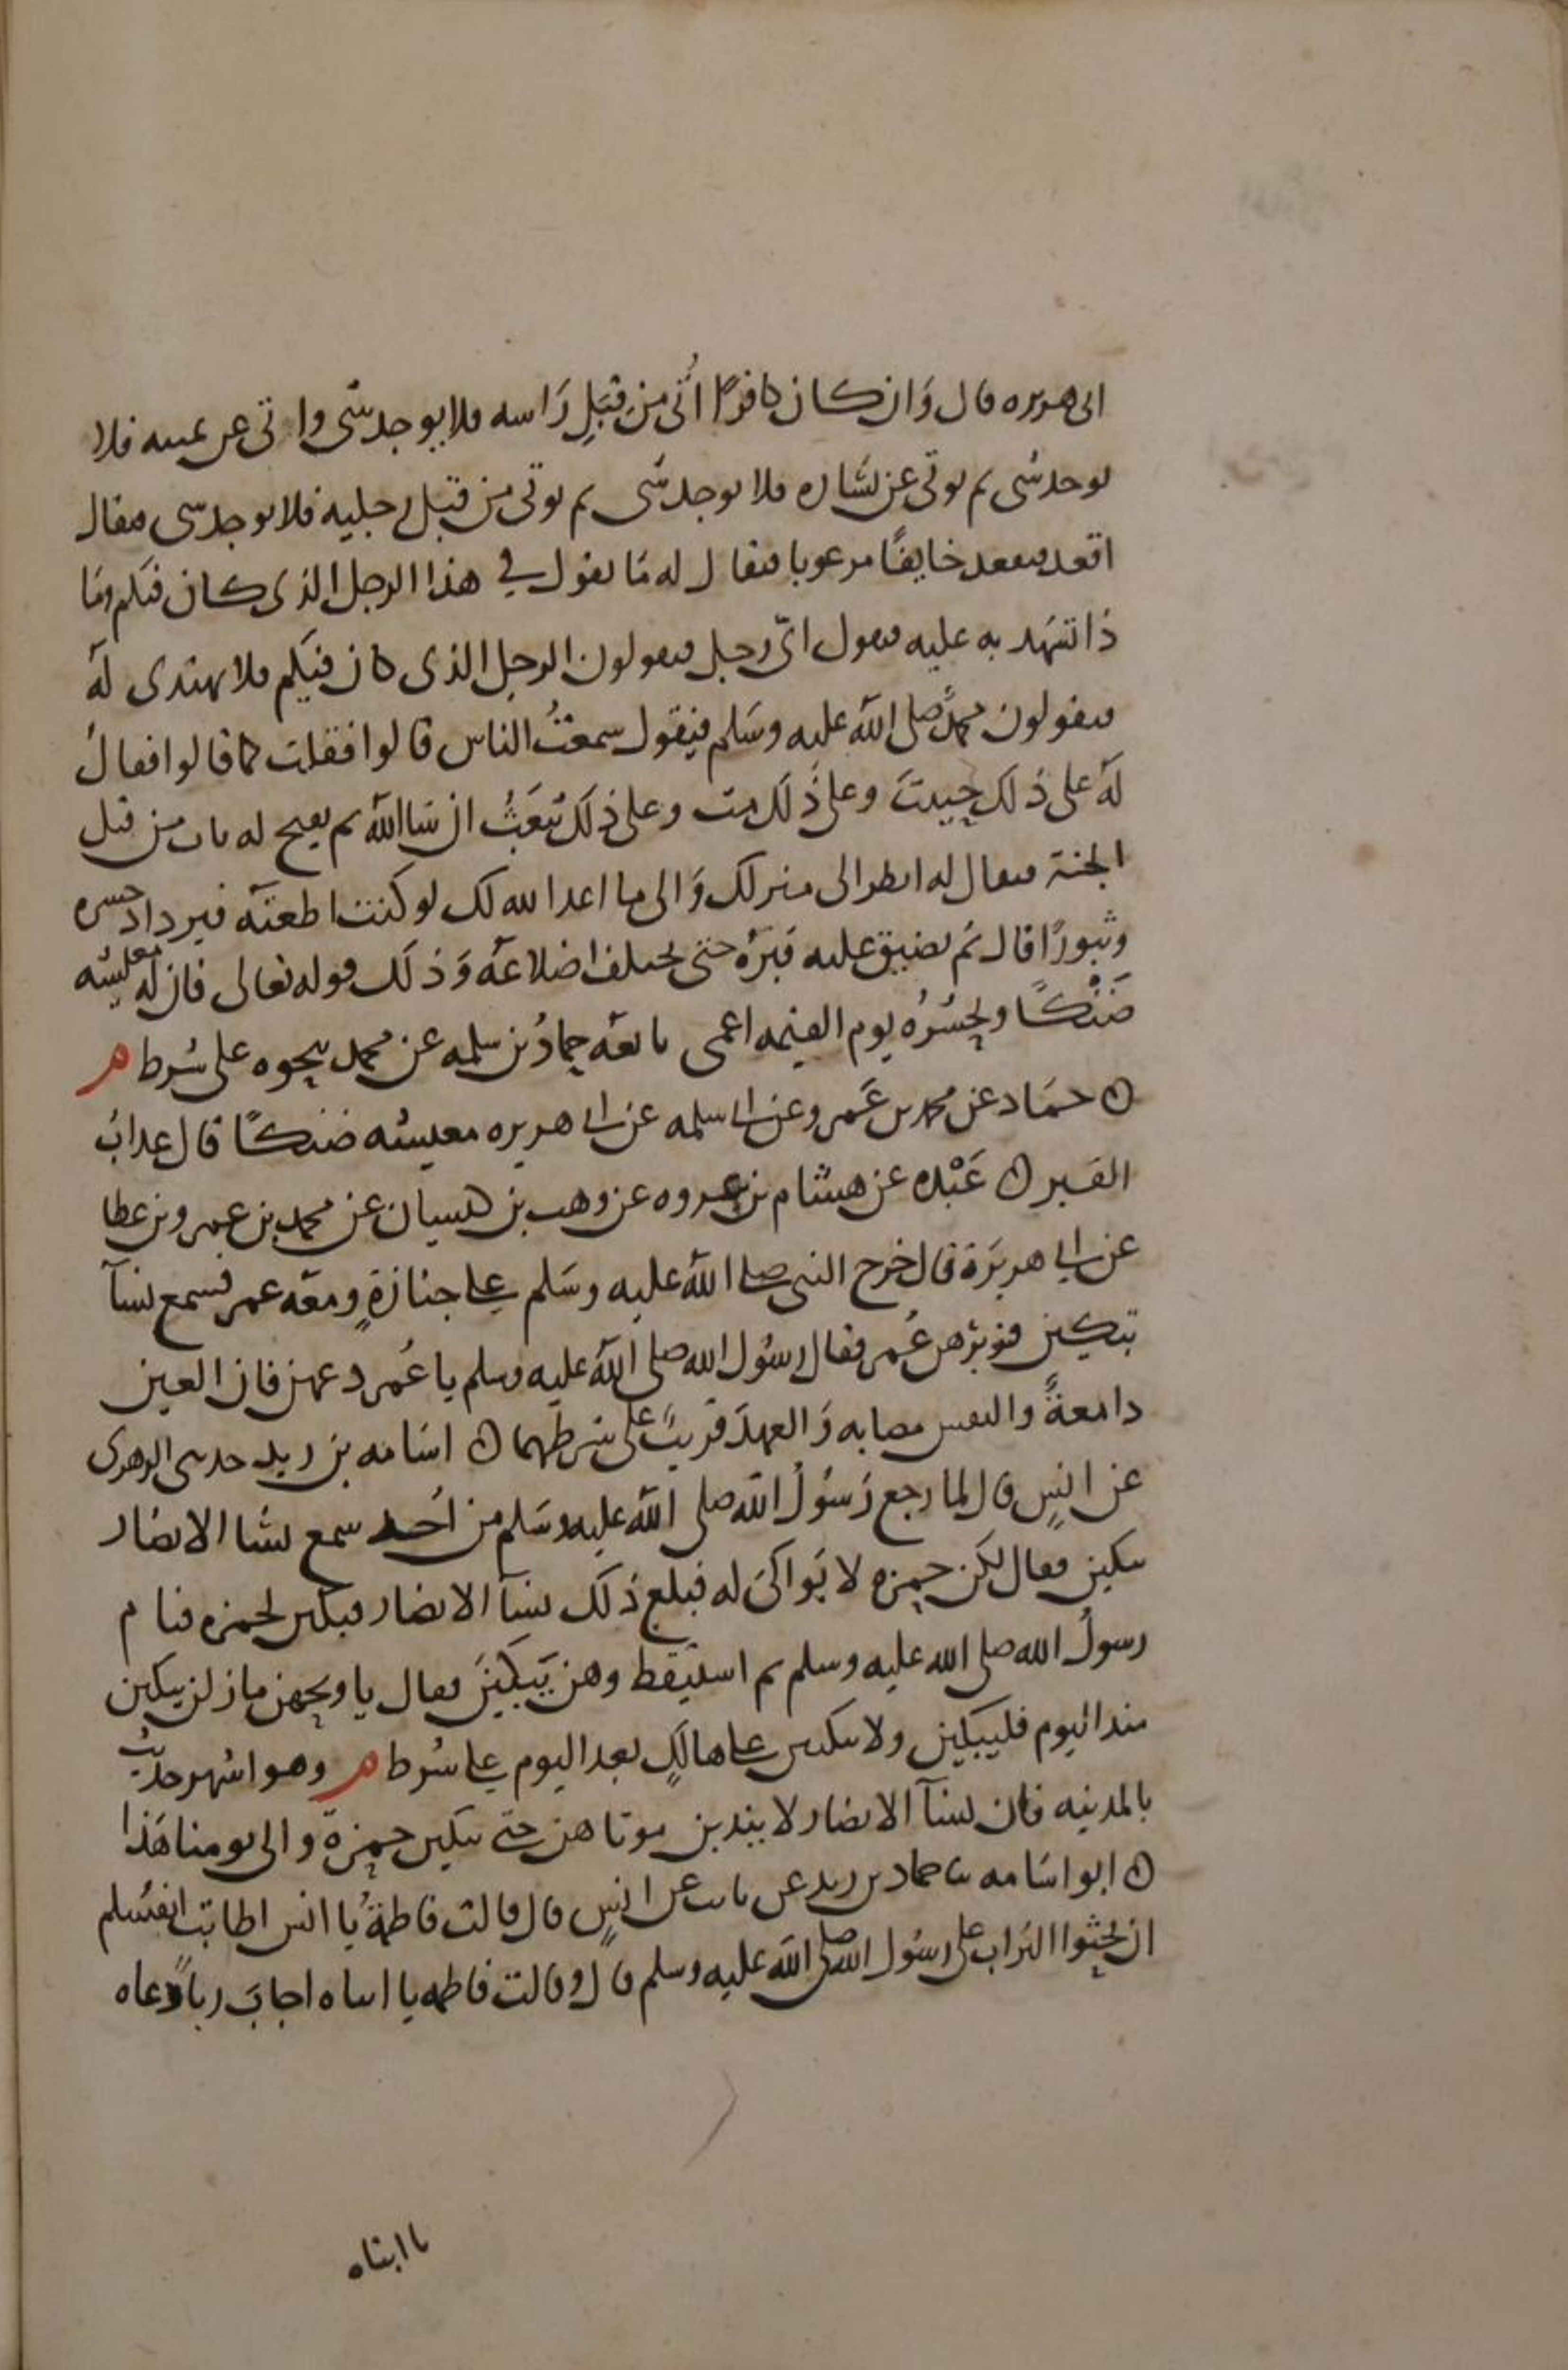 ابي هريره قال وَان كان كافرًا اُتي مِن قِبَلِ رَاسه فلا يوجد شي واتي عن يمينه فلا
يوجد شي ثم يوتي عن يَسَاره فلا يوجد شي ثم يوتي من قبل رجليه فلا يوجد شي فيقال
اقعد فيقعد خايفًا مرعوبا فيقال له مَا يقول في هذا الرجل الذي كان فيكم ومَا
ذا تشهد به عليه فيقول ايّ رجل فيقولون الرجل الذي كان فيكم فلا يهتدي لهَ
فيقولون محمدٌ صلى الله عليه وسَلم فيقول سمعتُ الناس قالوا فقلت كما قالوا فيقالُ
لهَ على ذلك حييتَ وعلى ذَلك مت وعلى ذلك تُبعَثُ ان شا الله ثم يفتح له باب من قبل
الجنة فيقال له انظر الى منزلك وَالى ما اعد الله لك لو كنت اطعتَه فيزداد حسره
وثبورًا قال ثم يضيق عليه قبرُه حتى يختلف اضلاعَه وَذلك قوله تعالى فان لهَ معيشه
ضَنْكًا ونحشُرُه يوم القيمه اعمى تابعَه حمادُ بن سلمه عن محمد بنحوه على شرط م
ه حمَاد عن محمد بن عَمرو عن ابي سلمه عن ابي هريره معيشه ضنكًا قال عذابُ
القبر ه عَبْده عن هشام بن عروه عن وهب بن كيسان عن محمد بن عمرو بن عطا
عن ابي هريرَة قال خرج النبي صلى اللهَ عليه وسَلم على جنازةٍ ومعَه عمر فسمع نسَآ
تبكين فزبرهن عُمر فقال رسُول الله صلى اللهَ عليه وسلم يا عُمر دعهن فان العين
دامعةً والنفس مصابه وَالعهدَ قريبٌ على شرطهما ه اسَامه بن زيد حدثني الزهري
عن انسٍ قال لما رجع رَسُولُ الله صلى اللهَ عليه وسَلم من اُحد سمع نسَا الانصَار
يبكين فقال لكن حمزه لا بَواكيَ له فبلغ ذَلك نسَآ الانصَار فبكين لحمزه فنام
رسولُ الله صلى الله عليه وسلم ثم استيقظ وهن يَبكينَ فقال يا ويحهن ما زلن يبكين
منذ اليوم فليبكين ولا يبكين على هالكٍ بعد اليوم على شرط م وهو اشهر حديث
بالمدينه فان نسَآ الانصَار لا يندبن موتاهن حتى يبكين حمزة والى يومنا هَذا
ه ابو اسَامه نا حماد بن زيد عن ثابت عن انسٍ قال قالت فاطمةُ يا انس اطابت انفسُكم
ان تحثوا التراب على رسُول الله صلى الله عليه وسلم قال وقالت فاطمه يا ابتاه اجابَ رباً دعاه
يا ابتاه